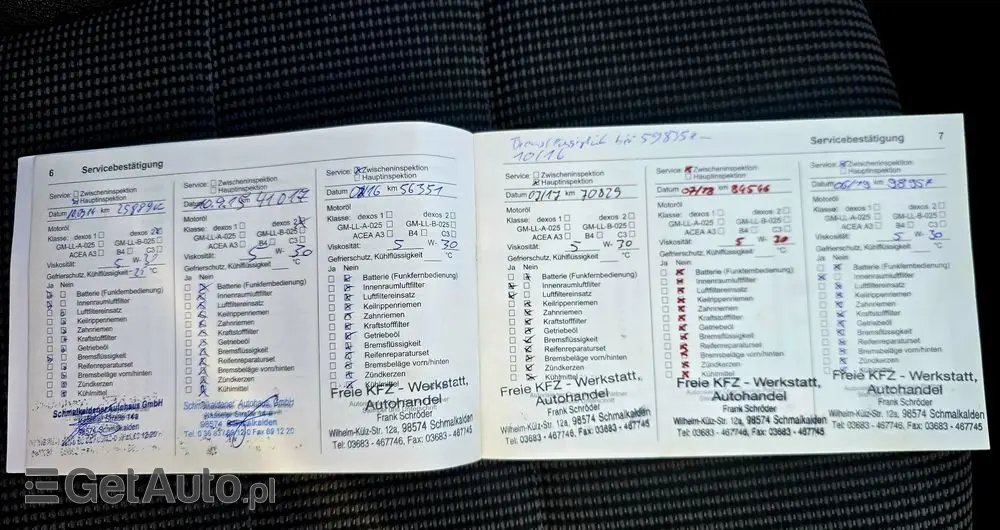 6 Servicebestätigung
Service: Zwischeninspektion
Hauptinspektion
Datum km
Motoröl
Klasse: dexos 1 dexos 2
GM-LL-A-025 GM-LL-B-025
ACEA A3 B4 C3
Viskosität: 5 W- 30
Gefrierschutz, Kühlflüssigkeit °C
Ja Nein
Batterie (Funkfernbedienung)
Innenraumluftfilter
Luftfiltereinsatz
Keilrippenriemen
Zahnriemen
Kraftstofffilter
Getriebeöl
Bremsflüssigkeit
Reifenreparaturset
Bremsbeläge vorn/hinten
Zündkerzen
Kühlmittel
Schmalkaldener Autohaus GmbH
Service: Zwischeninspektion
Hauptinspektion
Datum 10.9.15 km 41017
Motoröl
Klasse: dexos 1 dexos 2
GM-LL-A-025 GM-LL-B-025
ACEA A3 B4 C3
Viskosität: 5 W- 30
Gefrierschutz, Kühlflüssigkeit °C
Ja Nein
Batterie (Funkfernbedienung)
Innenraumluftfilter
Luftfiltereinsatz
Keilrippenriemen
Zahnriemen
Kraftstofffilter
Getriebeöl
Bremsflüssigkeit
Reifenreparaturset
Bremsbeläge vorn/hinten
Zündkerzen
Kühlmittel
Schmalkaldener Autohaus GmbH
98574 Schmalkalden
Service: Zwischeninspektion
Hauptinspektion
Datum 08/16 km 56351
Motoröl
Klasse: dexos 1 dexos 2
GM-LL-A-025 GM-LL-B-025
ACEA A3 B4 C3
Viskosität: 5 W- 30
Gefrierschutz, Kühlflüssigkeit °C
Ja Nein
Batterie (Funkfernbedienung)
Innenraumluftfilter
Luftfiltereinsatz
Keilrippenriemen
Zahnriemen
Kraftstofffilter
Getriebeöl
Bremsflüssigkeit
Reifenreparaturset
Bremsbeläge vorn/hinten
Zündkerzen
Kühlmittel
Freie KFZ - Werkstatt,
Autohandel
Frank Schröder
Wilhelm-Külz-Str. 12a, 98574 Schmalkalden
Tel: 03683 - 467746, Fax: 03683 - 467745
Servicebestätigung 7
10/16
Service: Zwischeninspektion
Hauptinspektion
Datum 07/17 km 70829
Motoröl
Klasse: dexos 1 dexos 2
GM-LL-A-025 GM-LL-B-025
ACEA A3 B4 C3
Viskosität: 5 W- 30
Gefrierschutz, Kühlflüssigkeit °C
Ja Nein
Batterie (Funkfernbedienung)
Innenraumluftfilter
Luftfiltereinsatz
Keilrippenriemen
Zahnriemen
Kraftstofffilter
Getriebeöl
Bremsflüssigkeit
Reifenreparaturset
Bremsbeläge vorn/hinten
Zündkerzen
Kühlmittel
Freie KFZ - Werkstatt,
Autohandel
Frank Schröder
Wilhelm-Külz-Str. 12a, 98574 Schmalkalden
Tel: 03683 - 467746, Fax: 03683 - 467745
Service: Zwischeninspektion
Hauptinspektion
Datum 07/18 km 84546
Motoröl
Klasse: dexos 1 dexos 2
GM-LL-A-025 GM-LL-B-025
ACEA A3 B4 C3
Viskosität: 5 W- 30
Gefrierschutz, Kühlflüssigkeit °C
Ja Nein
Batterie (Funkfernbedienung)
Innenraumluftfilter
Luftfiltereinsatz
Keilrippenriemen
Zahnriemen
Kraftstofffilter
Getriebeöl
Bremsflüssigkeit
Reifenreparaturset
Bremsbeläge vorn/hinten
Zündkerzen
Kühlmittel
Freie KFZ - Werkstatt,
Autohandel
Frank Schröder
Wilhelm-Külz-Str. 12a, 98574 Schmalkalden
Tel: 03683 - 467746, Fax: 03683 - 467745
Service: Zwischeninspektion
Hauptinspektion
Datum 06/19 km 98957
Motoröl
Klasse: dexos 1 dexos 2
GM-LL-A-025 GM-LL-B-025
ACEA A3 B4 C3
Viskosität: 5 W- 30
Gefrierschutz, Kühlflüssigkeit °C
Ja Nein
Batterie (Funkfernbedienung)
Innenraumluftfilter
Luftfiltereinsatz
Keilrippenriemen
Zahnriemen
Kraftstofffilter
Getriebeöl
Bremsflüssigkeit
Reifenreparaturset
Bremsbeläge vorn/hinten
Zündkerzen
Kühlmittel
Freie KFZ - Werkstatt,
Autohandel
Frank Schröder
Wilhelm-Külz-Str. 12a, 98574 Schmalkalden
Tel: 03683 - 467746, Fax: 03683 - 467745
GetAuto.pl